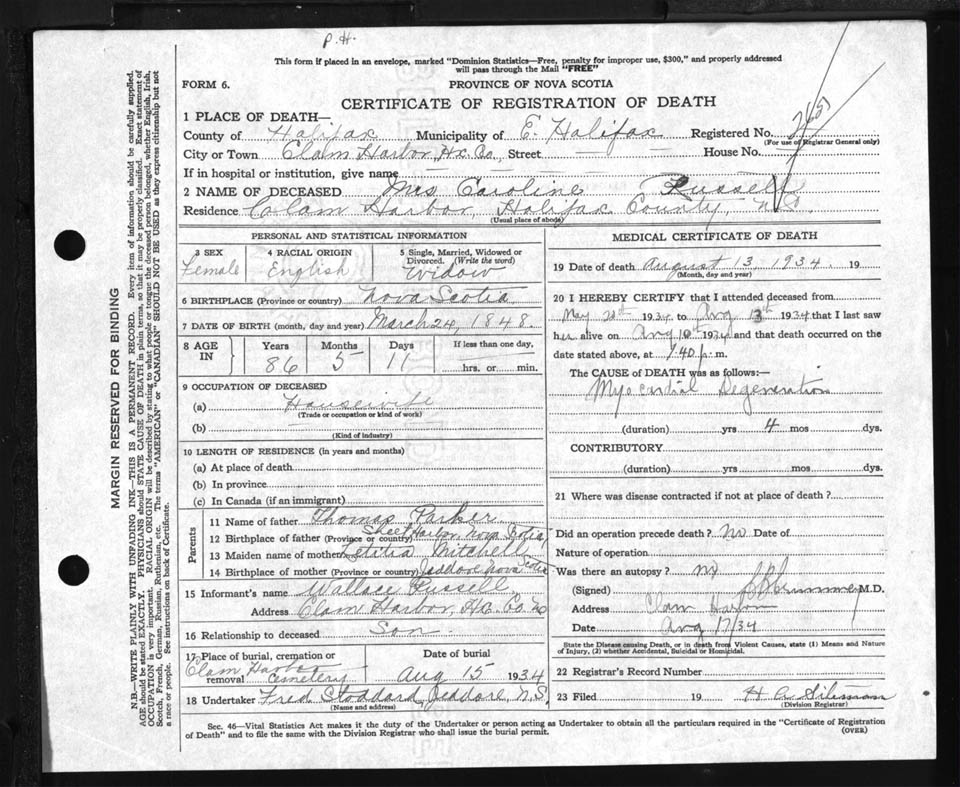 P.H.
This form if placed in an envelope, marked "Dominion Statistics—Free, penalty for improper use, $300," and properly addressed
will pass through the Mail "FREE"
FORM 6. PROVINCE OF NOVA SCOTIA
CERTIFICATE OF REGISTRATION OF DEATH
1 PLACE OF DEATH—
County of Halifax Municipality of E. Halifax Registered No.
(For use of Registrar General only)
City or Town Clam Harbor, Hx. Co., Street — House No. —
If in hospital or institution, give name —
2 NAME OF DECEASED Mrs Caroline Russell
Residence Clam Harbor, Halifax County, N.S.
(Usual place of abode)
PERSONAL AND STATISTICAL INFORMATION
3 SEX 4 RACIAL ORIGIN 5 Single, Married, Widowed or
Divorced. (Write the word)
Female English Widow
6 BIRTHPLACE (Province or country) Nova Scotia
7 DATE OF BIRTH (month, day and year) March 24, 1848.
8 AGE IN Years Months Days If less than one day,
86 5 11 hrs. or min.
9 OCCUPATION OF DECEASED
(a) Housewife
(Trade or occupation or kind of work)
(b)
(Kind of industry)
10 LENGTH OF RESIDENCE (in years and months)
(a) At place of death
(b) In province
(c) In Canada (if an immigrant)
Parents
11 Name of father Thomas Parker
12 Birthplace of father (Province or country) Sheet Harbor Nova Scotia
13 Maiden name of mother Letitia Mitchell
14 Birthplace of mother (Province or country) Jeddore Nova Scotia
15 Informant's name Wallace Russell
Address Clam Harbor, Hx. Co. NS
16 Relationship to deceased Son
17 Place of burial, cremation or removal Date of burial
Clam Harbor Cemetery Aug 15 1934
18 Undertaker Fred Stoddard, Jeddore, N.S.
(Name and address)
MEDICAL CERTIFICATE OF DEATH
19 Date of death August 13, 1934. 19
(Month, day and year)
20 I HEREBY CERTIFY that I attended deceased from
May 1934 to Aug 13th 1934 that I last saw
her alive on Aug 10th 1934 and that death occurred on
date stated above, at 7.40 p.m.
The CAUSE OF DEATH was as follows:—
Myocardial Degeneration
(duration) yrs 4 mos dys.
CONTRIBUTORY
(duration) yrs. mos. dys.
21 Where was disease contracted if not at place of death?
Did an operation precede death? no Date of
Nature of operation
Was there an autopsy? no
(Signed) M.D.
Address Clam Harbor
Date Aug 17/34
State the Disease causing Death, or in death from Violent Causes, state (1) Means and Nature
of Injury, (2) whether Accidental, Suicidal or Homicidal.
22 Registrar's Record Number
23 Filed 19
(Division Registrar)
Sec. 46—Vital Statistics Act makes it the duty of the Undertaker or person acting as Undertaker to obtain all the particulars required in the "Certificate of Registration
of Death" and to file the same with the Division Registrar who shall issue the burial permit.
(OVER)
MARGIN RESERVED FOR BINDING
N.B.—WRITE PLAINLY WITH UNFADING INK—THIS IS A PERMANENT RECORD. Every item of information should be carefully supplied.
AGE should be stated EXACTLY. PHYSICIANS should STATE CAUSE OF DEATH in plain terms, so that it may be properly classified. Exact statement of
OCCUPATION is very important. RACIAL ORIGIN will be described by stating to what people or tongue the deceased person belonged, whether English, Irish,
Scotch, French, German, Russian, Ruthenian, etc. The terms "AMERICAN" or "CANADIAN" SHOULD NOT BE USED as they express citizenship but not
a race or people. See instructions on back of Certificate.